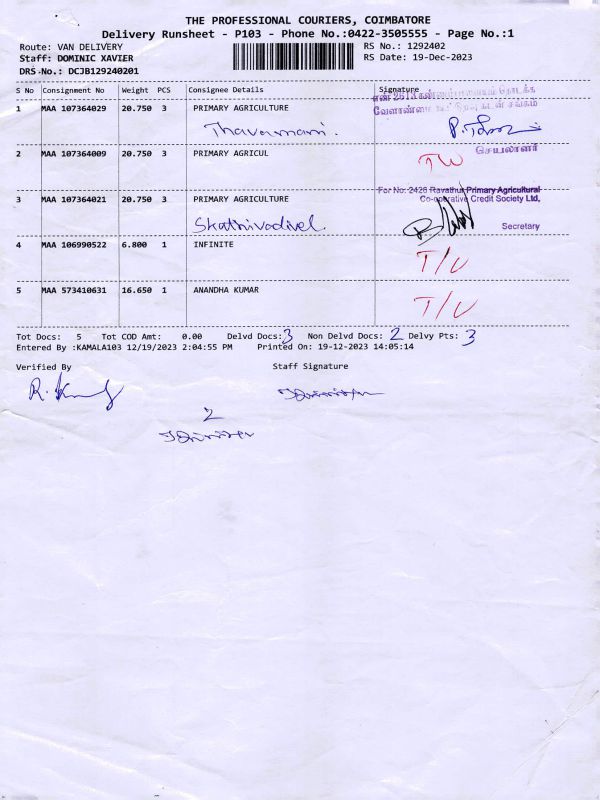 THE PROFESSIONAL COURIERS, COIMBATORE
Delivery Runsheet - P103 - Phone No.:0422-3505555 - Page No.:1
Route: VAN DELIVERY RS No.: 1292402
Staff: DOMINIC XAVIER RS Date: 19-Dec-2023
DRS No.: DCJB129240201
S No Consignment No Weight PCS Consignee Details Signature
1 MAA 107364029 20.750 3 PRIMARY AGRICULTURE
Thavamani.
2 MAA 107364009 20.750 3 PRIMARY AGRICUL
செயலாளர்
3 MAA 107364021 20.750 3 PRIMARY AGRICULTURE
For No: 2426 Ravathur Primary Agricultural
Co-operative Credit Society Ltd,
Secretary
4 MAA 106990522 6.800 1 INFINITE
T/U
5 MAA 573410631 16.650 1 ANANDHA KUMAR
T/U
Tot Docs: 5 Tot COD Amt: 0.00 Delvd Docs: 3 Non Delvd Docs: 2 Delvy Pts: 3
Entered By :KAMALA103 12/19/2023 2:04:55 PM Printed On: 19-12-2023 14:05:14
Verified By Staff Signature
2